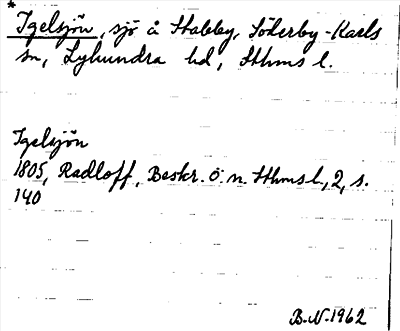 *
Igelsjön, sjö å Stabby, Söderby-Karls
sn, Lyhundra hd, Sthms l.
Igelsjön
1805, Radloff, Beskr. ö. n. Sthms l., 2, s.
140
B.N. 1962